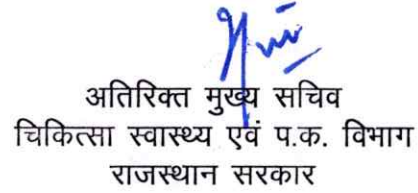 अतिरिक्त मुख्य सचिव
चिकित्सा स्वास्थ्य एवं प.क. विभाग
राजस्थान सरकार